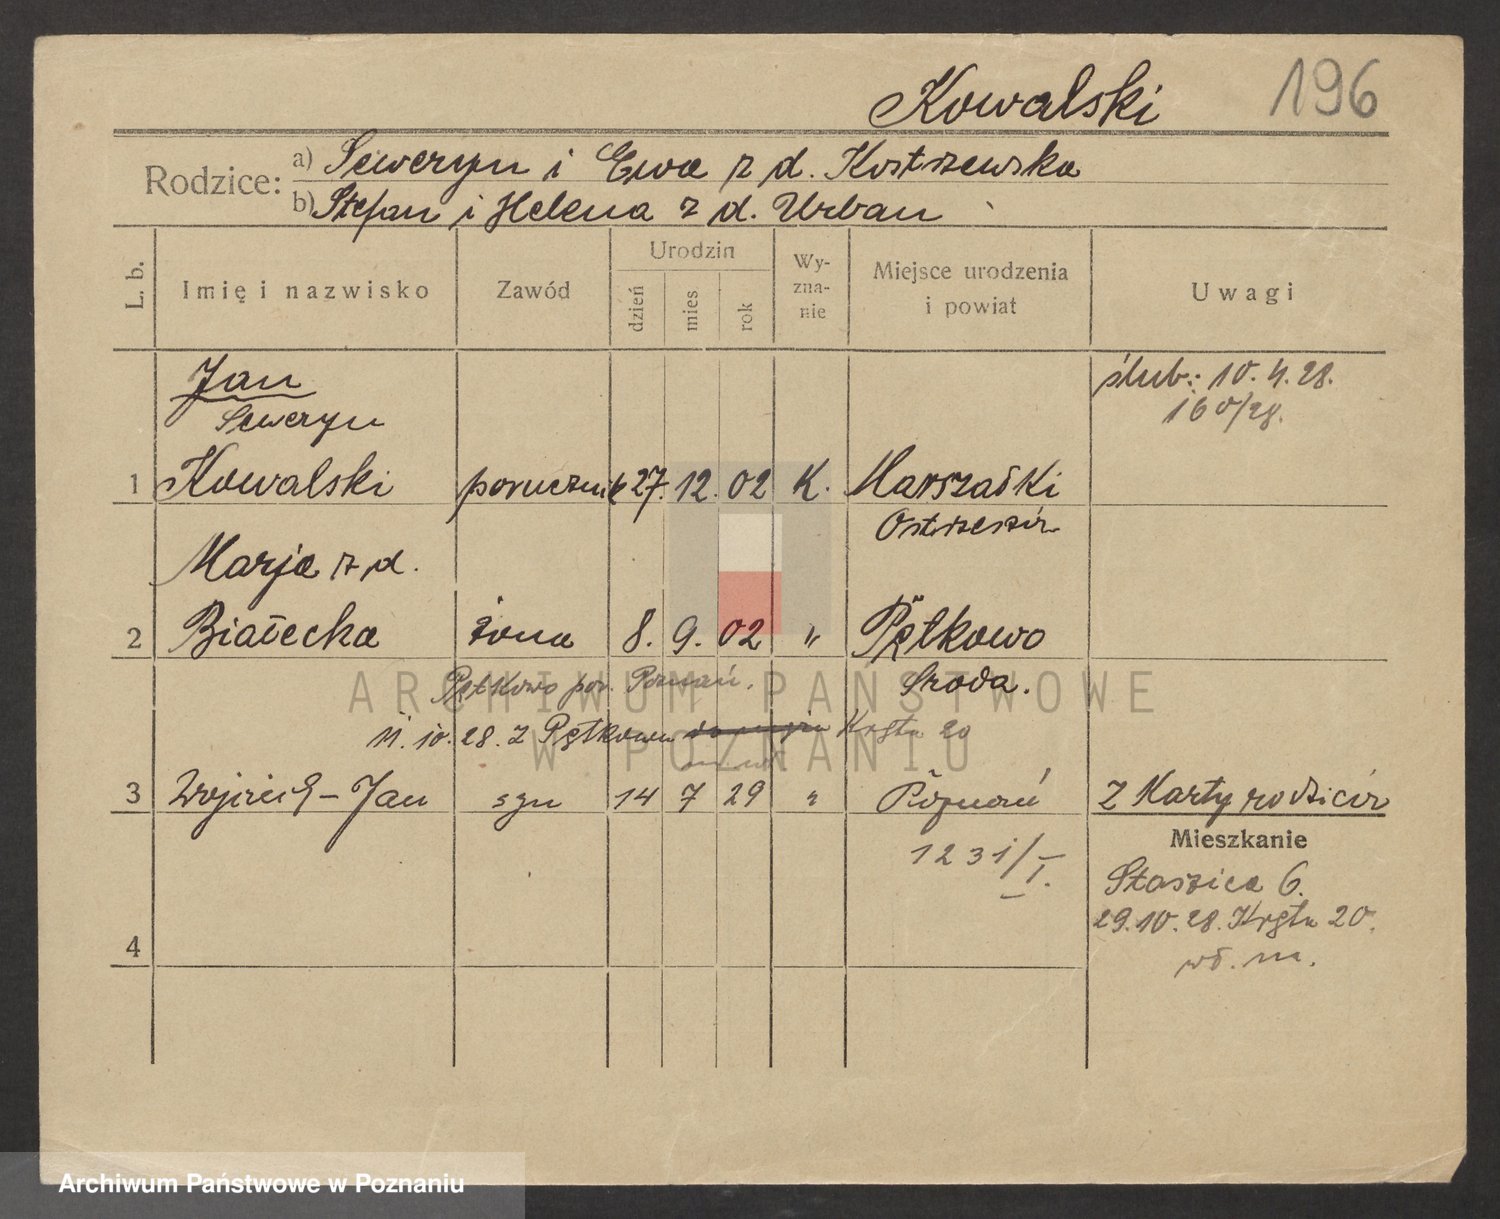 Kowalski 196
Rodzice: a) Seweryn i Ewa z d. Kostrzewska
b) Stefan i Helena z d. Urban
L. b. Imię i nazwisko Zawód Urodzin dzień mies rok Wyzna-nie Miejsce urodzenia i powiat Uwagi
Jan ślub: 10.4.28.
Seweryn 160/28.
1 Kowalski porucznik 27. 12. 02 K. Marszałki
Ostrzeszów
Marja z d.
2 Białecka żona 8. 9. 02 " Pętkowo
Pętkowo pow. Poznań. Środa.
11.10.28. z Pętkowa Kręta 20
3 Wojciech-Jan syn 14 7 29 " Poznań Z Karty rodziców
Mieszkanie
1231/I. Staszica 6.
29.10.28. Kręta 20.
4 wł. m.
ARCHIWUM PAŃSTWOWE
W POZNANIU
Archiwum Państwowe w Poznaniu